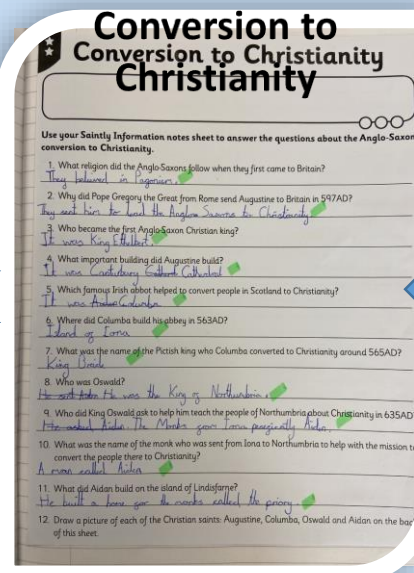 Conversion to
Conversion to Christianity
Christianity
Use your Saintly Information notes sheet to answer the questions about the Anglo-Saxon
conversion to Christianity.
1. What religion did the Anglo-Saxons follow when they first came to Britain?
They believed in Paganism.
2. Why did Pope Gregory the Great from Rome send Augustine to Britain in 597AD?
They sent him to lead the Anglo Saxons to Christianity
3. Who became the first Anglo-Saxon Christian king?
It was King Ethelbert.
4. What important building did Augustine build?
It was Canterbury Cathedral
5. Which famous Irish abbot helped to convert people in Scotland to Christianity?
It was Columba
6. Where did Columba build his abbey in 563AD?
Island of Iona
7. What was the name of the Pictish king who Columba converted to Christianity around 565AD?
King Bride
8. Who was Oswald?
He was the King of Northumbria.
9. Who did King Oswald ask to help him teach the people of Northumbria about Christianity in 635AD
He asked Aidan. The Monks from Iona Aidan.
10. What was the name of the monk who was sent from Iona to Northumbria to help with the mission t
convert the people there to Christianity?
A man called Aidan
11. What did Aidan build on the island of Lindisfarne?
He built a home for the monks called the priory.
12. Draw a picture of each of the Christian saints: Augustine, Columba, Oswald and Aidan on the bac
of this sheet.